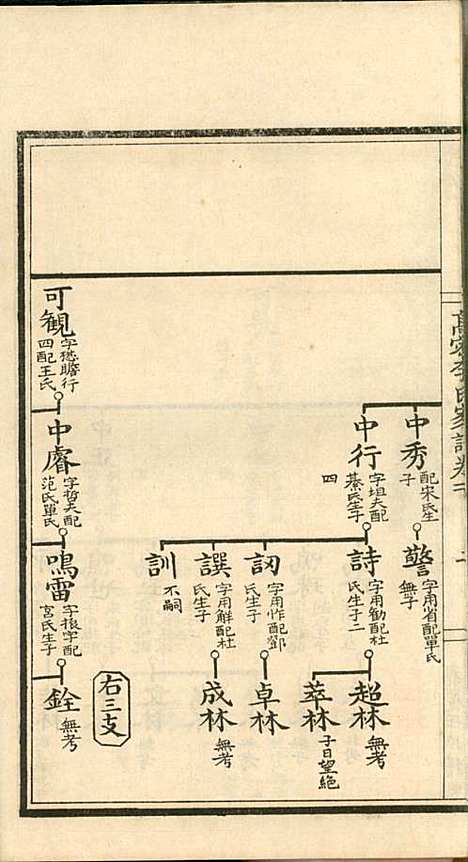 高密李氏家譜卷
中秀
配宋氏生
子
警
字用省配單氏
無子
中行
字坦夫配
綦氏生子
四
詩
字用勸配杜
氏生子二
超林
無考
萃林
子日望絕
訒
字用怍配鄧
氏生子
卓林
譔
字用解配杜
氏生子
成林
無考
訓
不嗣
右三支
可觀
字悐瞻行
四配王氏
中睿
字哲夫配
范氏單氏
鳴雷
字振宇配
宮氏生子
銓
無考